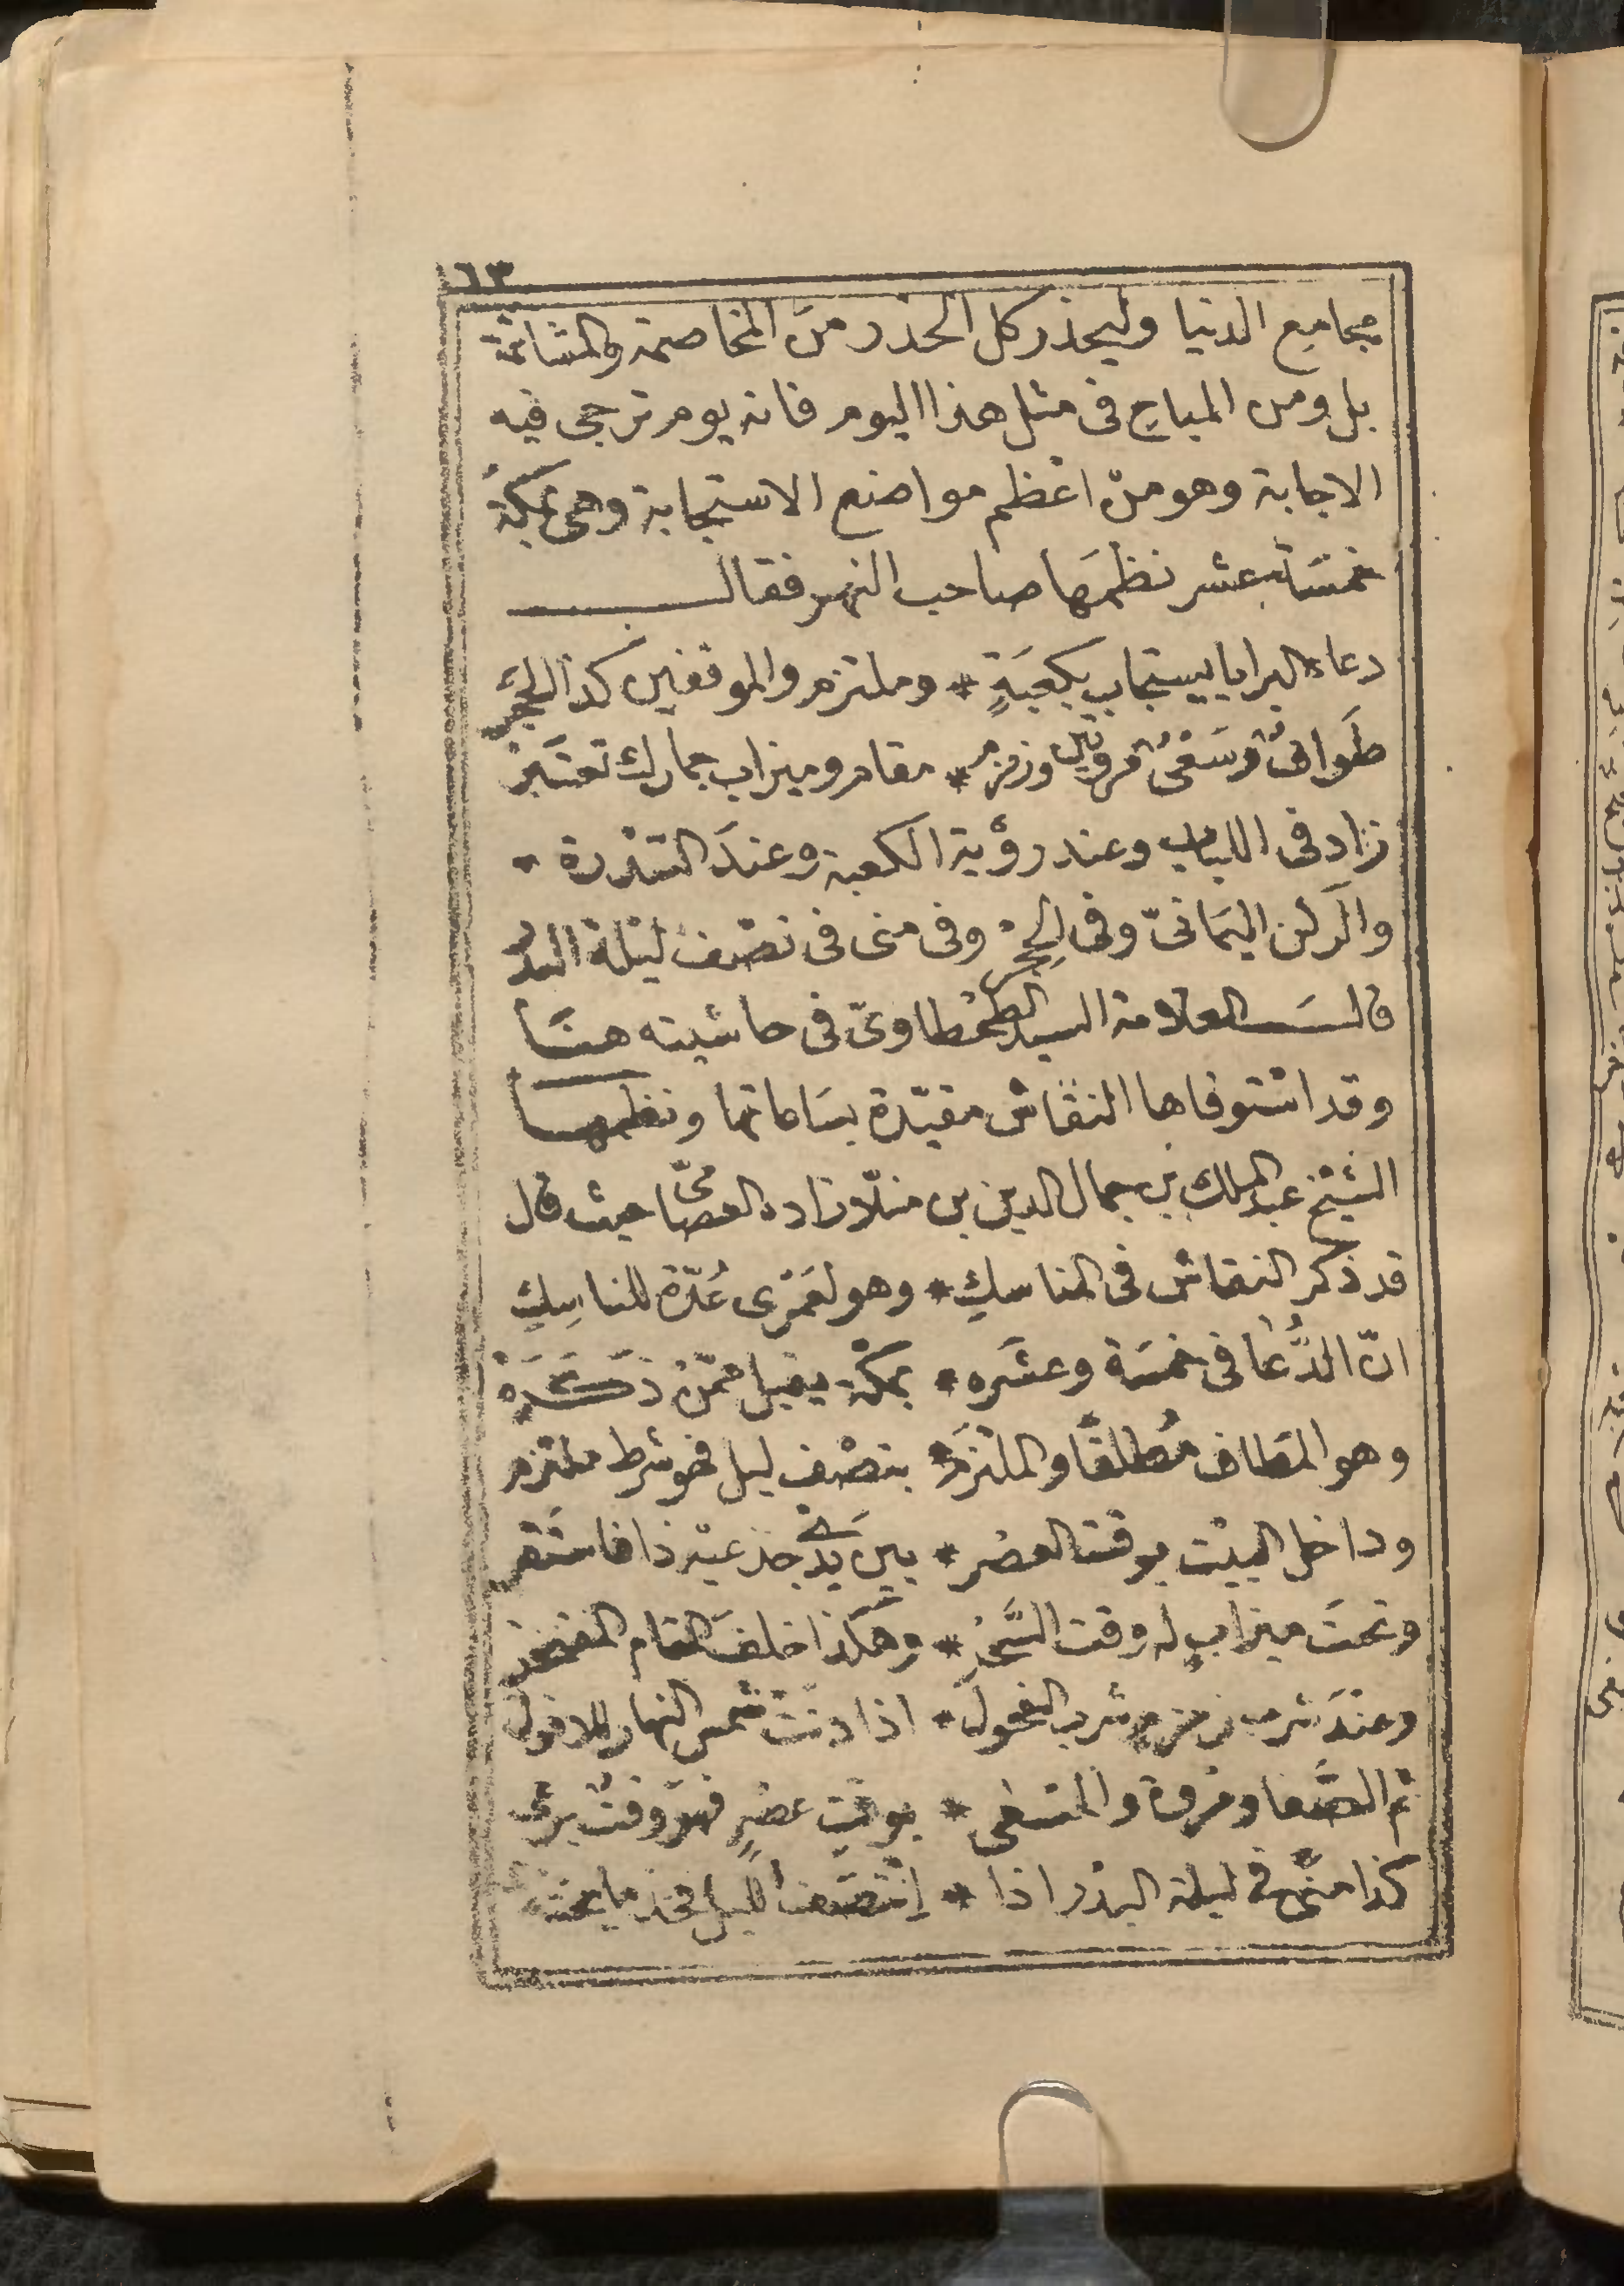 ٦٣
مجامع الدنيا وليحذر كل الحذر من المخاصمة والمشاتمة
بل ومن المباح في مثل هذا اليوم فانه يوم ترجى فيه
الاجابة وهو من اعظم مواضع الاستجابة وهى بمكة
خمسة عشر نظمها صاحب النهر فقال
دعاء البرايا يستجاب بكعبةٍ * وملتزم والموقفين كذا الحجر
طواف وسعى مروتين وزمزم * مقام وميزاب جمارك تعتبر
زاد فى اللباب وعند رؤية الكعبة وعند السدرة
والركن اليمانىّ وفى الحِجْر وفى منى فى نصف ليلة البدر
قال العلامة السيد الطحطاوىّ فى حاشيته هنا
وقد استوفاها النقاش مقيّدة بساعاتها ونظمها
الشيخ عبد الملك بن جمال الدين بن منلّا زاده العصامىّ حيث قال
قد ذكر النقاش فى المناسك * وهو لعمرى عُدّة للناسِك
انّ الدُّعا فى خمسة وعشره * بمكة يقبل ممن ذكره
وهو المطاف مُطلقًا والملتزم * بنصف ليل فهو شرط ملتزم
وداخل البيت بوقت العصر * بين يدى جذعيه ذا فاستقر
وتحت ميزابٍ له وقت السَّحَر * وهكذا خلف المقام المفتخر
وعند شرب زمزم شرب الفحول * اذا دنت شمس النهار للافول
ثم الصفا ومروة والمسعى * بوقت عصرٍ فهو وقت يرعى
كذا منى فى ليلة البدر اذا * اِنتصف الليل فخذ ما يحتذى